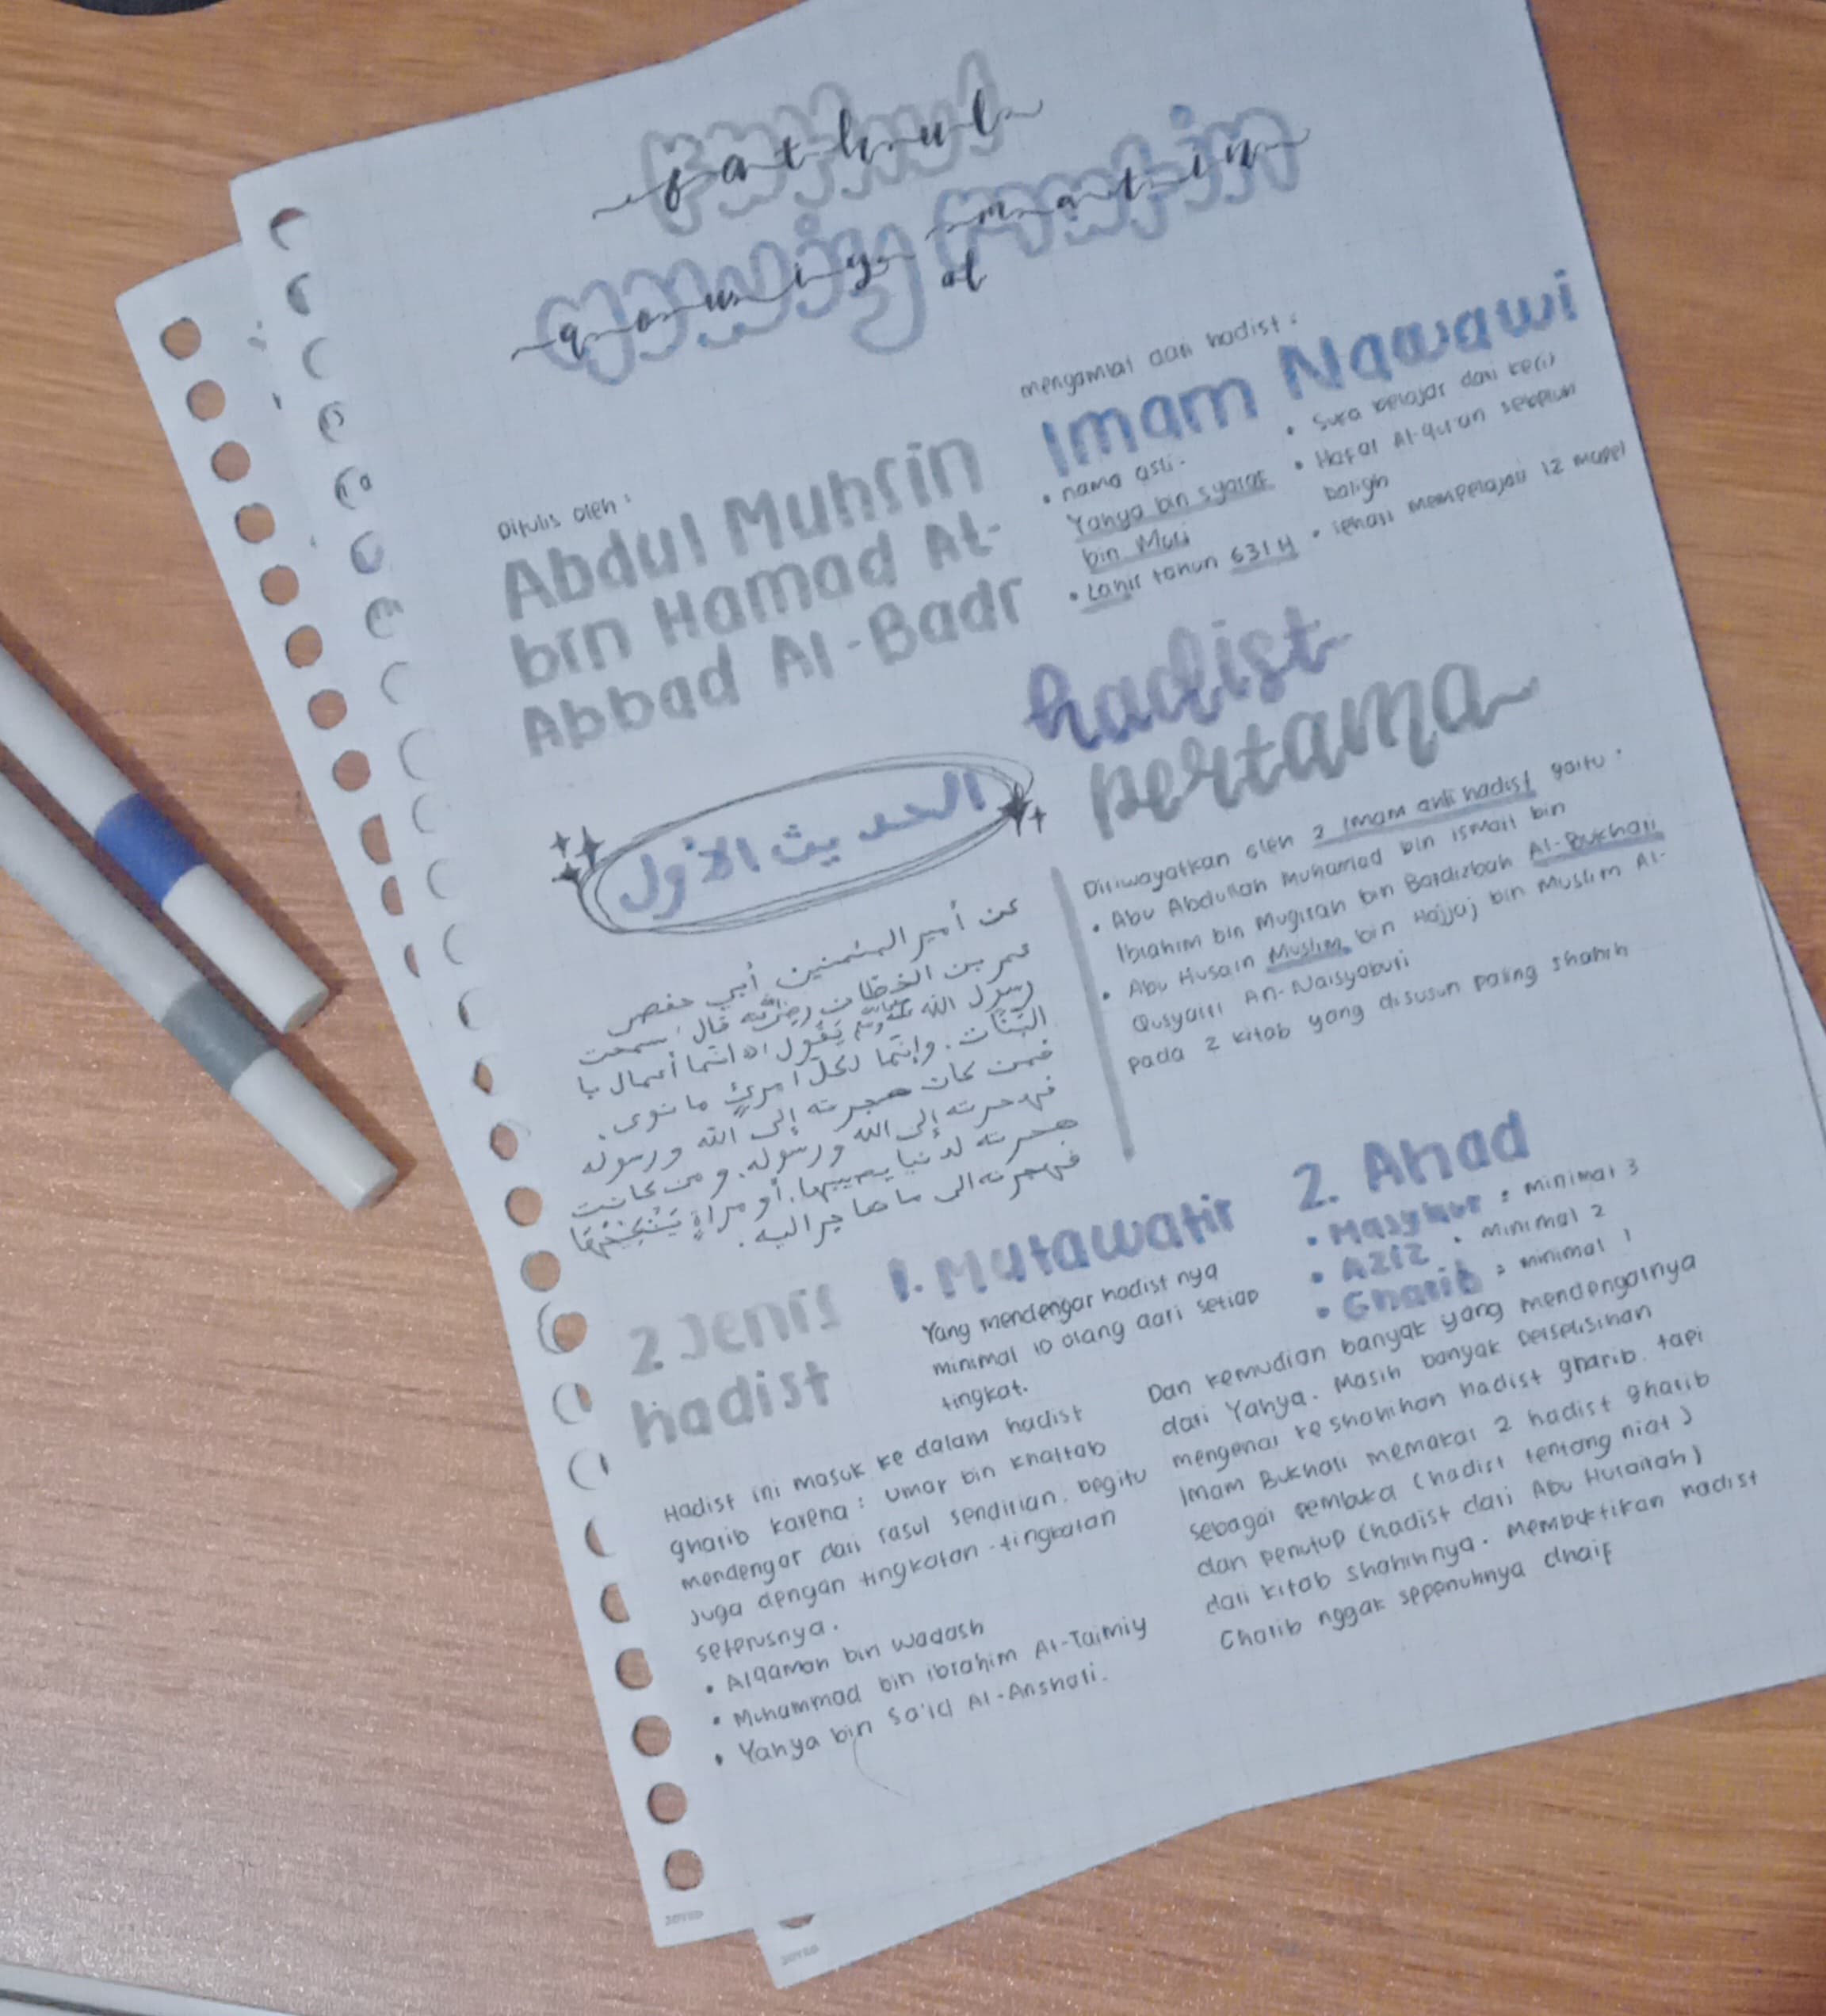 fathul
qowiyy al matin
Ditulis oleh :
Abdul Muhsin
bin Hamad Al-
Abbad Al-Badr
mengambil dari hadist :
Imam Nawawi
• nama asli :
Yahya bin syaraf
bin Muri
• Lahir tahun 631 H
• Suka belajar dari kecil
• Hafal Al-Qur'an sebelum
baligh
• sehari mempelajari 12 mapel
hadist
pertama
الحديث الأول
عن أمير المئمنين أبي حفص
عمر بن الخطاب رضي الله عنه قال : سمعت
رسول الله ﷺ يقول : إنما أعمال با
النيات. وإنما لكل امرئ ما نوى.
فمن كان هجرته إلى الله ورسوله
فهجرته إلى الله ورسوله. ومن كانت
هجرته لدنيا يصيبها. أو مراة ينكحها
فهجرته الى ما هاجر اليه.
Diriwayatkan oleh 2 imam ahli hadist yaitu :
• Abu Abdullah Muhamad bin Ismail bin
Ibrahim bin Mugirah bin Bardizbah Al-Bukhari
• Abu Husain Muslim bin Hajjaj bin Muslim Al-
Qusyairi An-Naisyaburi
pada 2 kitab yang disusun paling shahih
2 Jenis
hadist
1. Mutawatir
Yang mendengar hadist nya
minimal 10 orang dari setiap
tingkat.
2. Ahad
• Masyhur : minimal 3
• Aziz : minimal 2
• Gharib : minimal 1
Hadist ini masuk ke dalam hadist
gharib karena : Umar bin Khattab
mendengar dari rasul sendirian. begitu
juga dengan tingkatan-tingkatan
seterusnya.
• Alqamah bin Wadash
• Muhammad bin ibrahim At-Taimiy
• Yahya bin Sa'id Al-Anshari.
Dan kemudian banyak yang mendengarnya
dari Yahya. Masih banyak perselisihan
mengenai keshahihan hadist gharib. tapi
Imam Bukhari memakai 2 hadist gharib
sebagai pembuka (hadist tentang niat)
dan penutup (hadist dari Abu Hurairah)
dari kitab shahihnya. Membuktikan hadist
Gharib nggak sepenuhnya dhaif